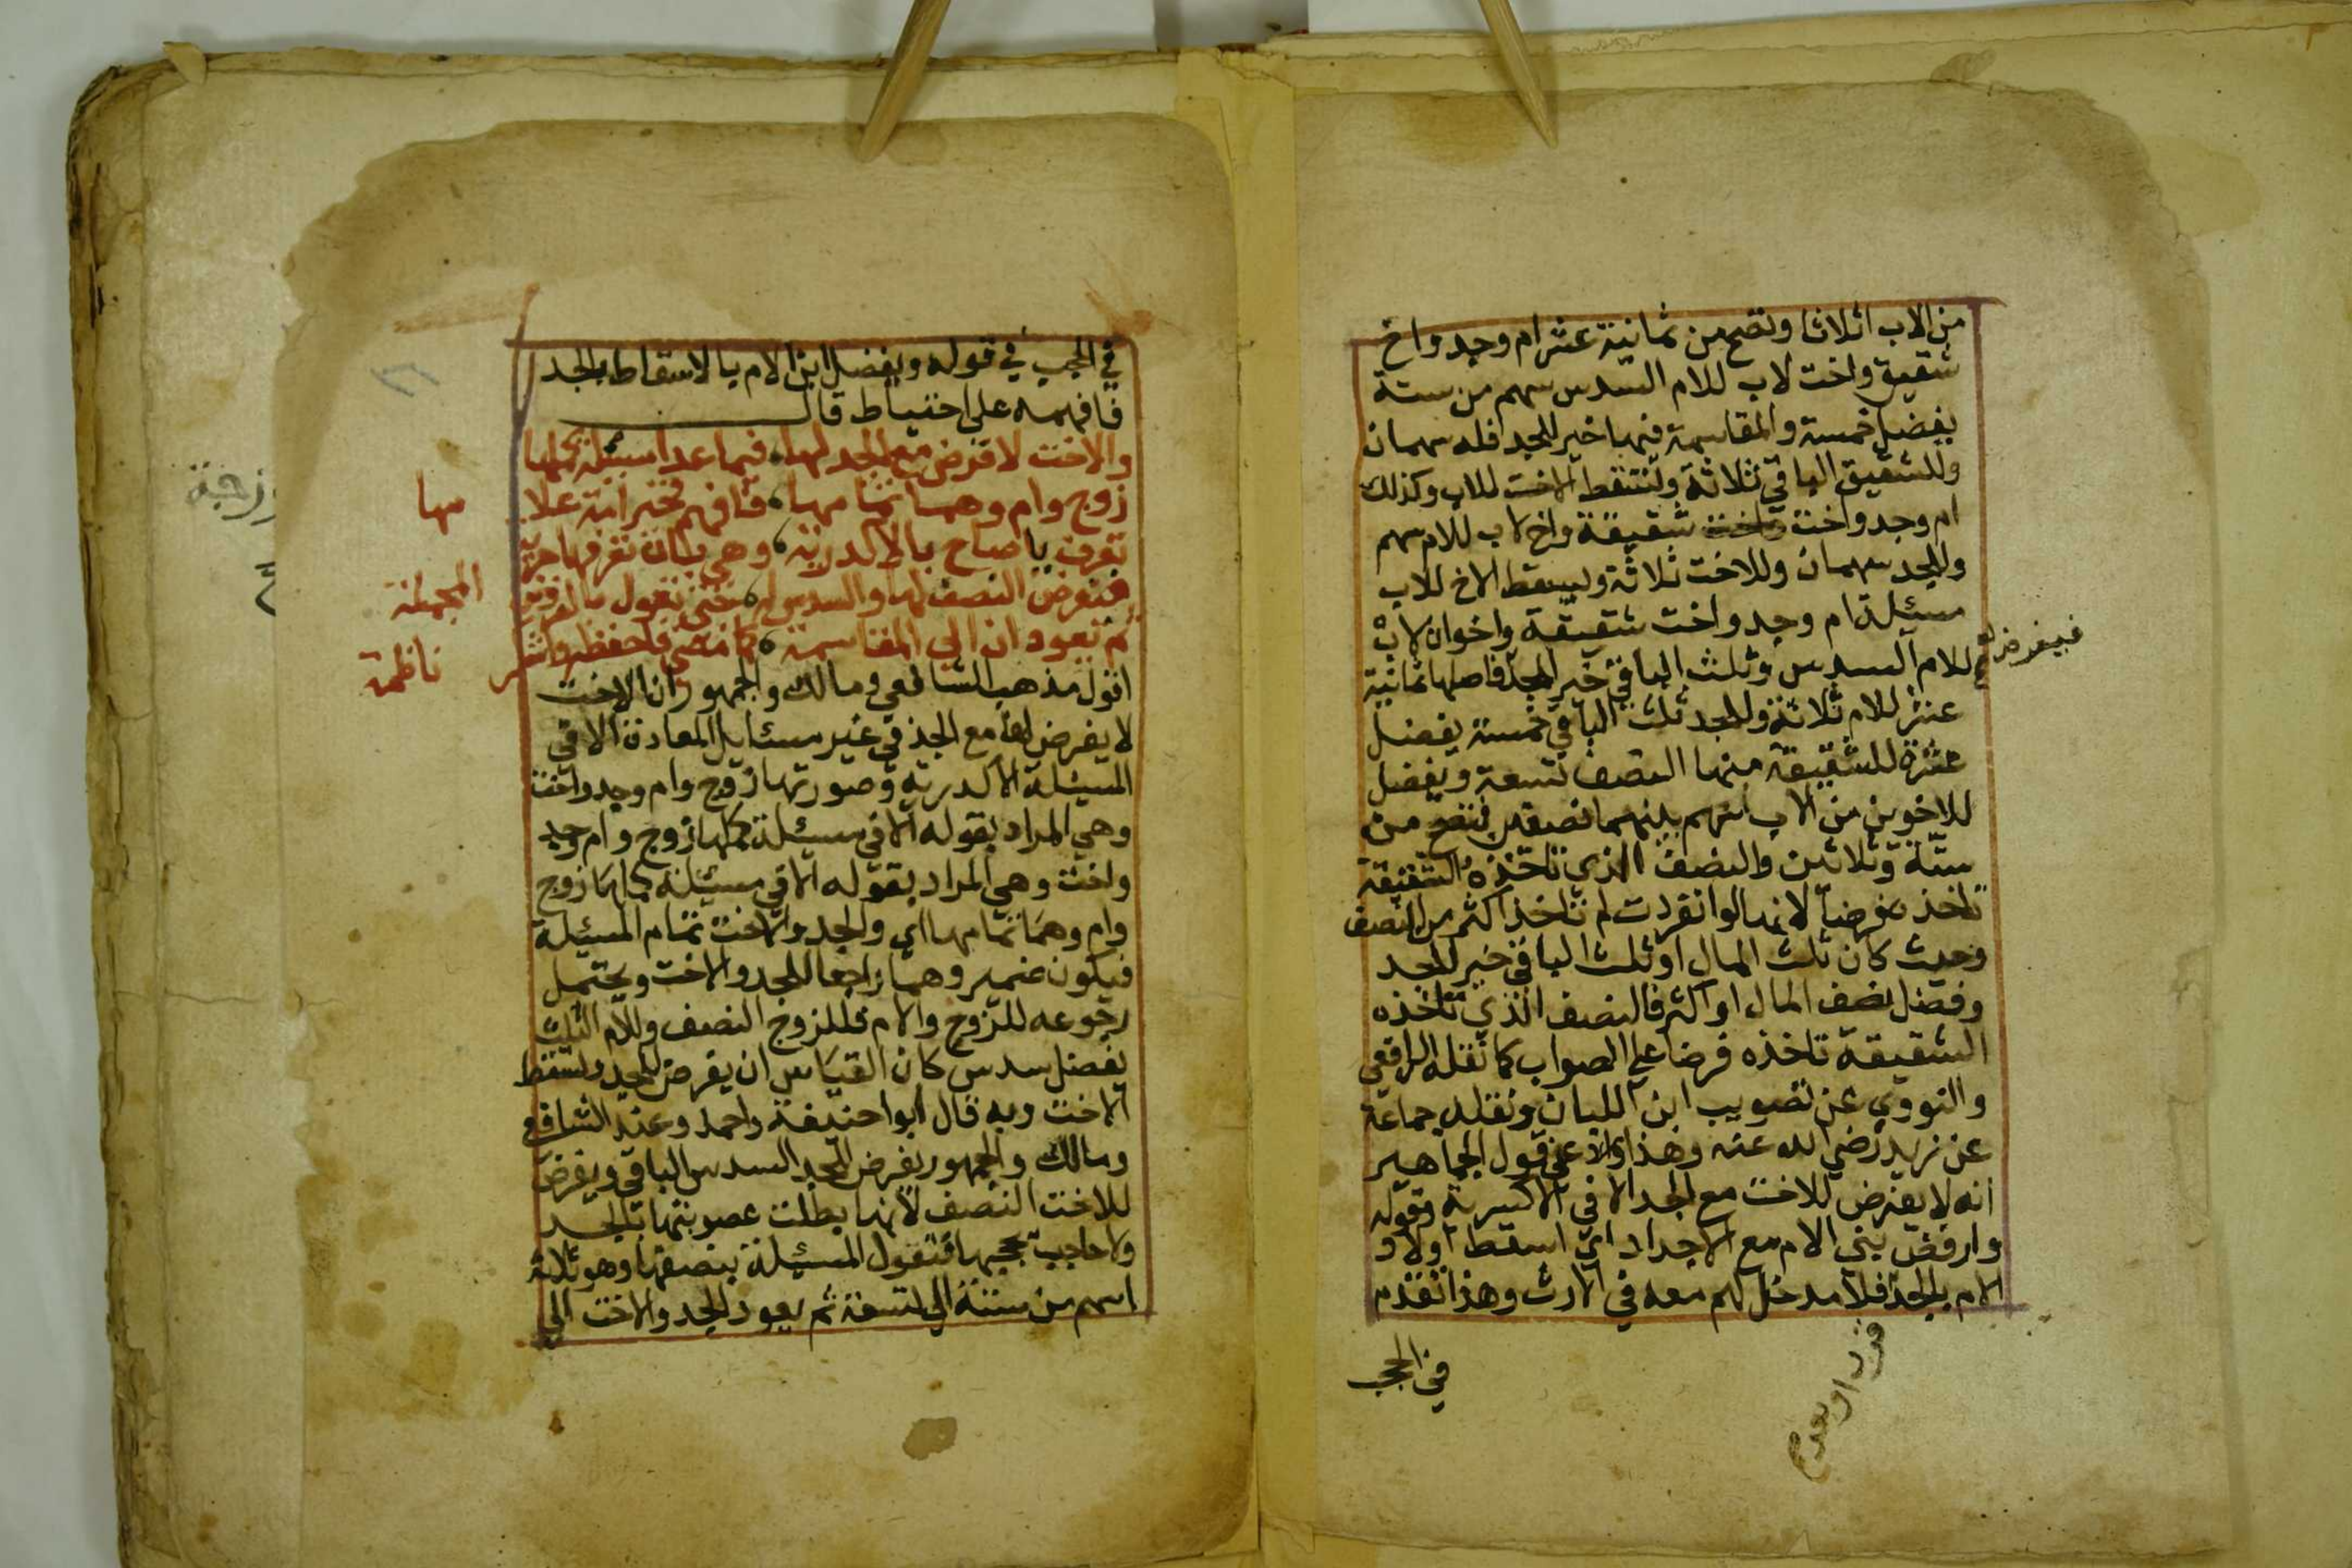 من الاب اثلاثا وتصح من ثمانية عشر ام وجد واخ
شقيق واخت لاب للام السدس سهم من ستة
يفضل خمسة والمقاسمة فيها خير للجد فله سهمان
وللشقيق الباقي ثلاثة وتسقط الاخت للاب وكذلك
ام وجد واخت شقيقة واخ لاب للام سهم
وللجد سهمان وللاخت ثلاثة ويسقط الاخ للاب
مسئلة ام وجد واخت شقيقة واخوان لاب
للام السدس وثلث الباقي خير للجد فاصلها ثمانية
عشر للام ثلاثة وللجد ثلث الباقي خمسة يفضل
عشرة للشقيقة منها النصف تسعة ويفضل
للاخوين من الاب سهم بينهما نصفين فتصح من
ستة وثلاثين والنصف الذي تاخذه الشقيقة
تاخذه فرضا لانها لو انفردت لم تاخذ اكثر من النصف
وحيث كان ثلث المال او ثلث الباقي خير للجد
وفضل نصف المال او اكثر فالنصف الذي تاخذه
الشقيقة تاخذه فرضا على الصواب كما نقله الرافعي
والنووي عن تصويب ابن اللبان ونقله جماعة
عن زيد رضي الله عنه وهذا قول الجماهير
انه لا يفرض للاخت مع الجد الا في الاكدرية وقوله
وارفض بني الام مع الاجداد اي اسقط اولاد
الام بالجد فلا مدخل لهم معه في الارث وهذا تقدم
في الحجب
في الحجب في قوله ويفضل ابن الام بالاسقاط بالجد
فافهمه على احتياط قال
والاخت لا فرض مع الجد لها فيما عدا مسئلة كملها
زوج وام وهما تمامها فافهم فخير امة علامها
تعرف يا صاح بالاكدرية وهي بان تعرفها حرية
فتفرض النصف لها والسدس له حتى تعول بالفروض المجملة
ثم تعودان الى المقاسمة كما مضى فاحفظه واشكر ناظمه
اقول مذهب الشافعي ومالك والجمهور ان الاخت
لا يفرض لها مع الجد في غير مسائل المعادة الا في
المسئلة الاكدرية وصورتها زوج وام وجد واخت
وهي المراد بقوله الا في مسئلة كملها زوج وام وجد
واخت وهي المراد بقوله الا في مسئلة كملها زوج
وام وهما تمامها اي والجد والاخت تمام المسئلة
فيكون ضمير وهما راجعا للجد والاخت ويحتمل
رجوعه للزوج والام فللزوج النصف وللام الثلث
يفضل سدس كان القياس ان يفرض للجد وتسقط
الاخت وبه قال ابوا حنيفة واحمد وعند الشافعي
ومالك والجمهور يفرض للجد السدس الباقي ويفرض
للاخت النصف لانها بطلت عصوبتها بالجد
ولا حاجب يحجبها فتعول المسئلة بنصفها وهو ثلاثة
اسهم من ستة الى تسعة ثم يعود الجد والاخت الى